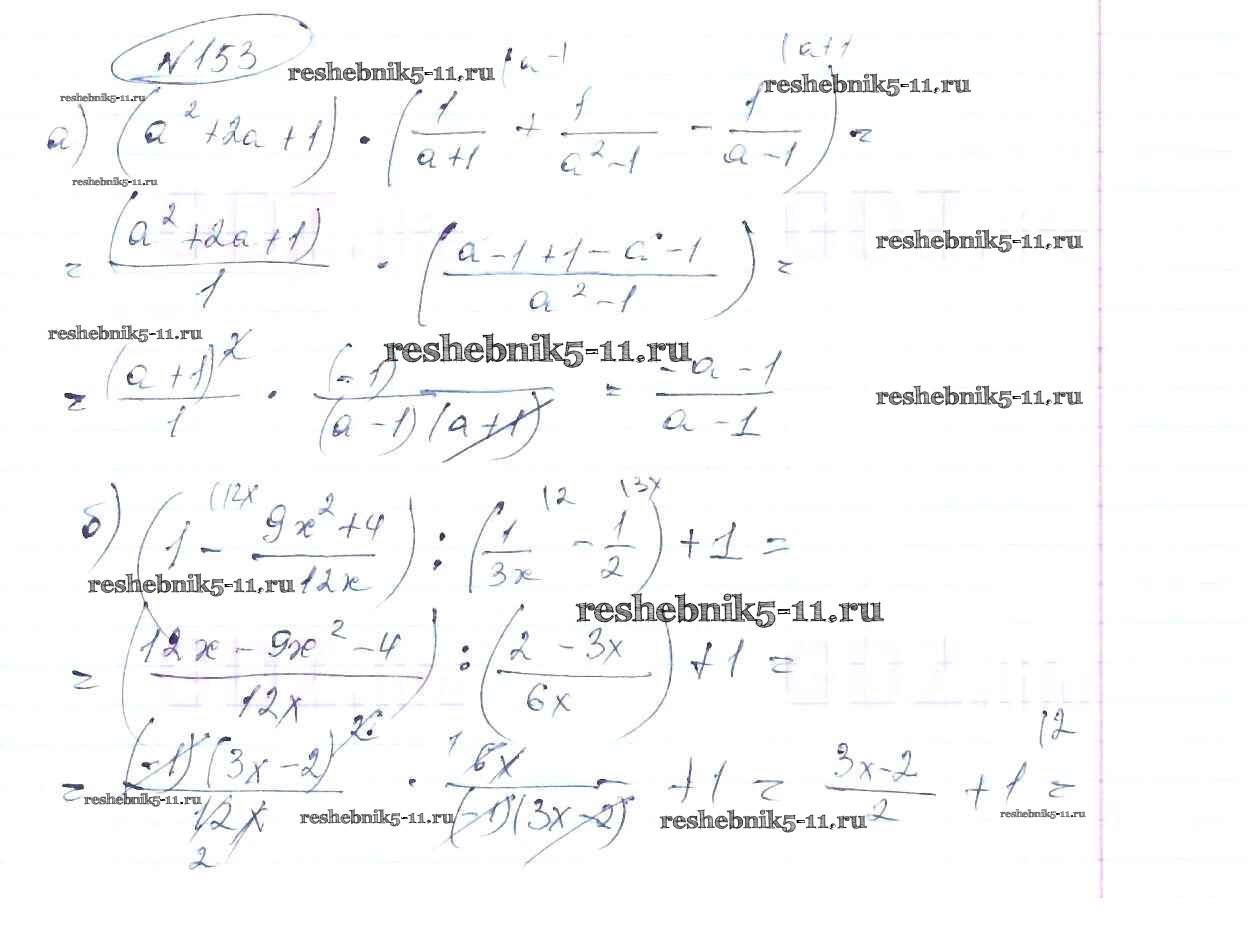 №153
reshebnik5-11.ru
(a-1
(a+1
reshebnik5-11.ru
reshebnik5-11.ru
а) (a² + 2a + 1) · (1/(a+1) + 1/(a²-1) - 1/(a-1)) =
reshebnik5-11.ru
= (a² + 2a + 1)/1 · ((a - 1 + 1 - a - 1)/(a² - 1)) =
reshebnik5-11.ru
reshebnik5-11.ru
reshebnik5-11.ru
= (a+1)²/1 · (-1)/((a-1)(a+1)) = (-a-1)/(a-1)
reshebnik5-11.ru
(12x
(2
(3x
б) (1 - (9x²+4)/12x) : (1/3x - 1/2) + 1 =
reshebnik5-11.ru
reshebnik5-11.ru
= ((12x - 9x² - 4)/12x) : ((2 - 3x)/6x) + 1 =
(2
= (-1)(3x-2)²/12x · 6x/((-1)(3x-2)) + 1 = (3x-2)/2 + 1 =
1
2
reshebnik5-11.ru
reshebnik5-11.ru
reshebnik5-11.ru
reshebnik5-11.ru